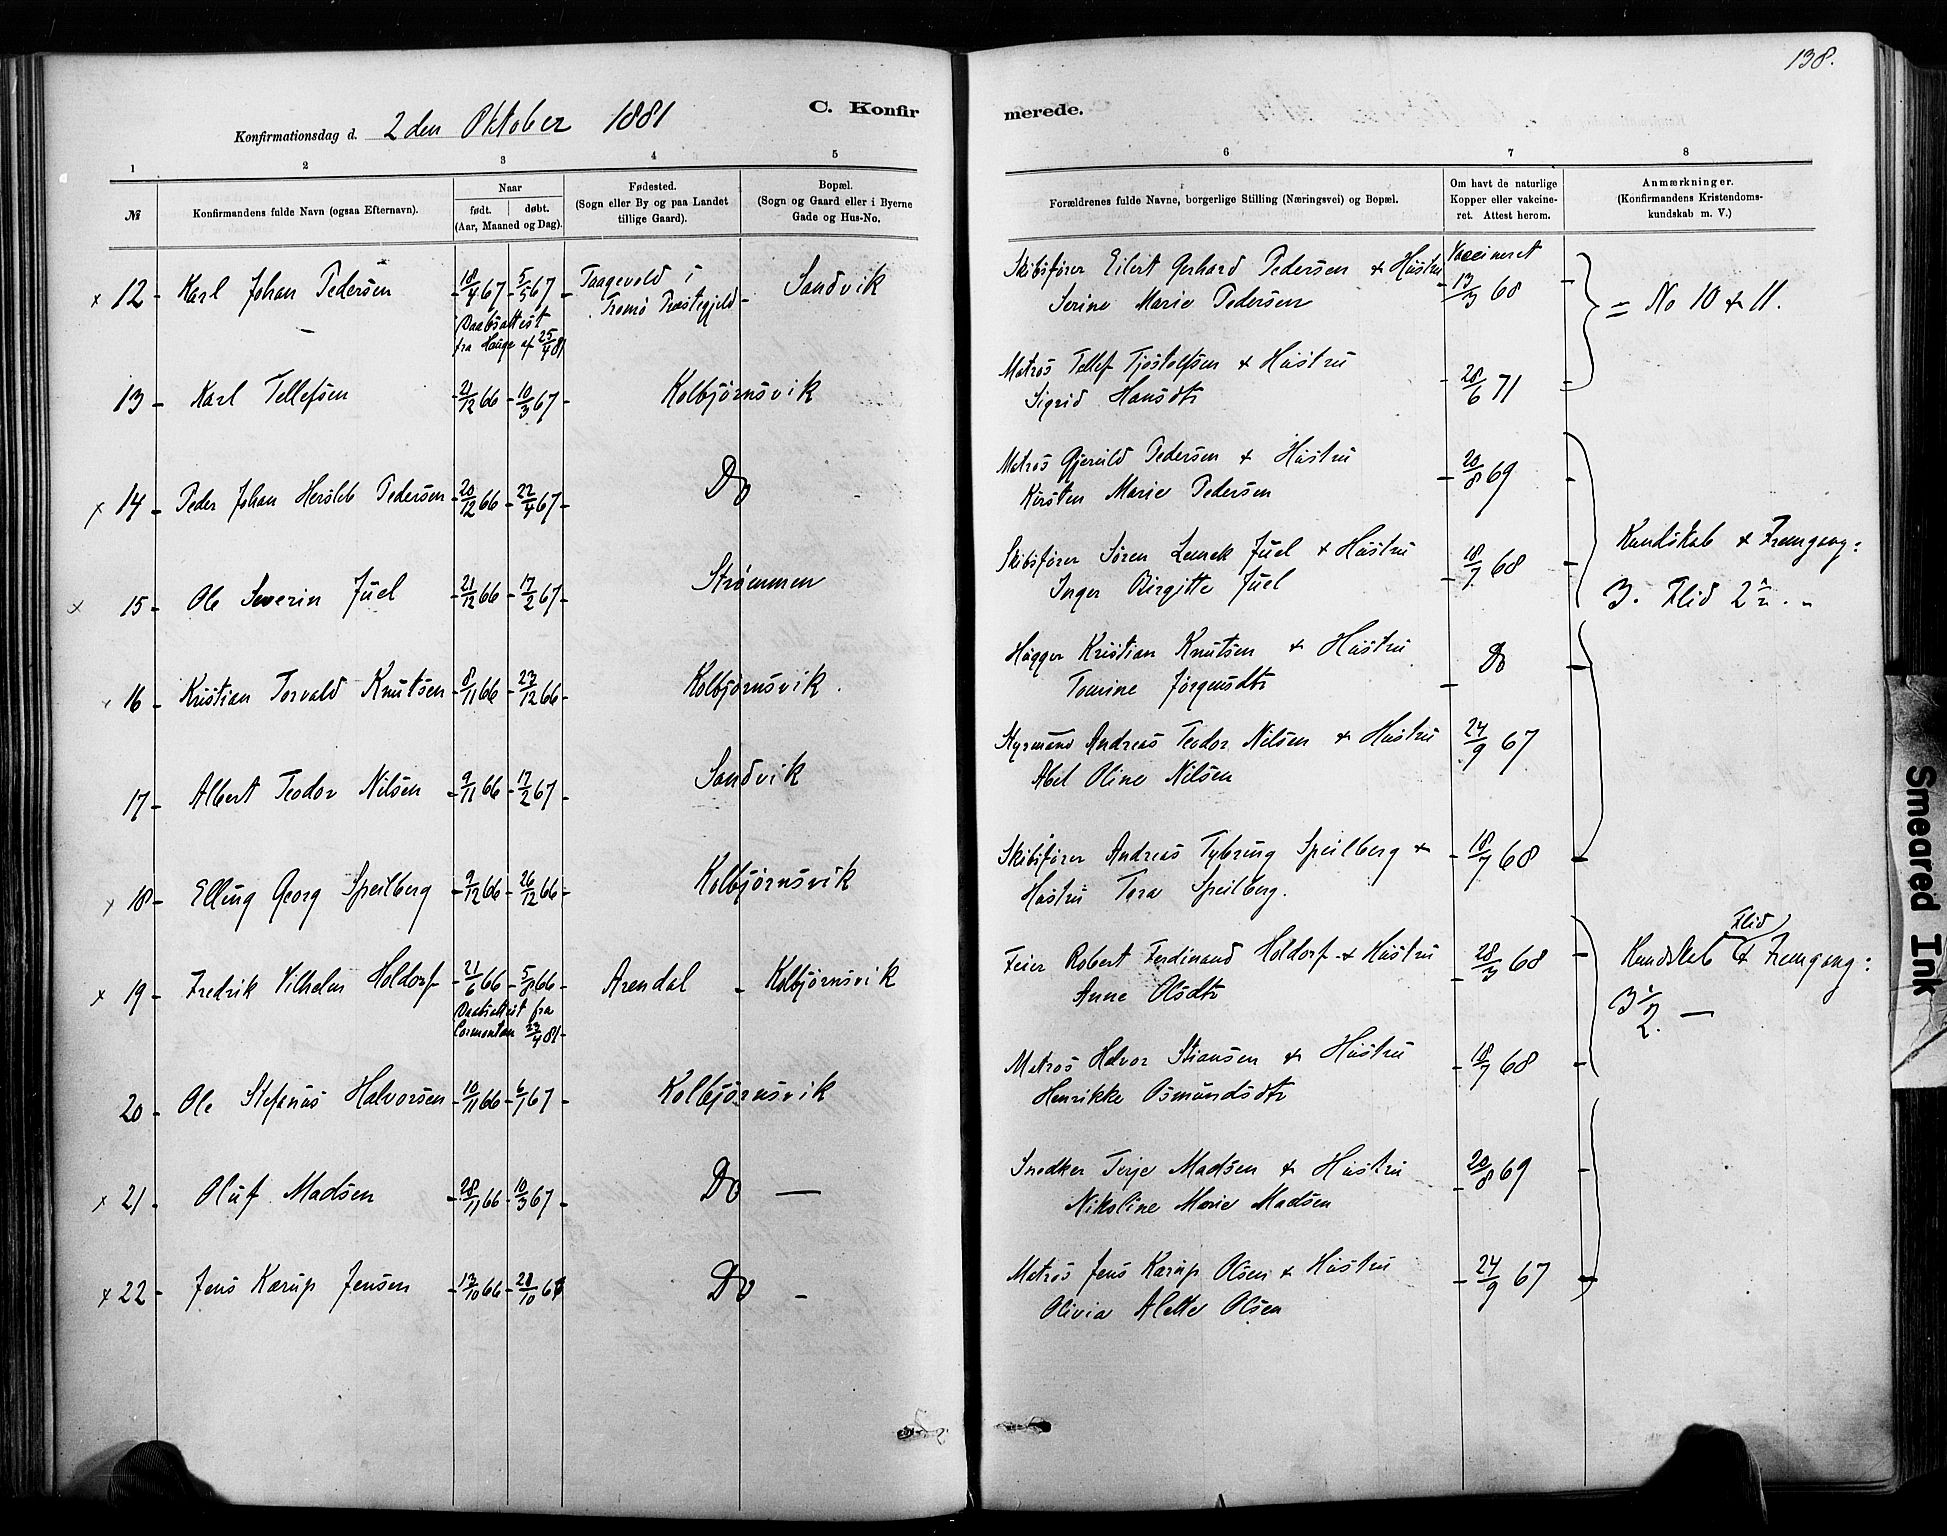 138.
C. Konfirmerede.
Konfirmationsdag d. 2den Oktober 1881
1 2 3 4 5 6 7 8
№
Konfirmandens fulde Navn (ogsaa Efternavn).
Naar
født. døbt.
(Aar, Maaned og Dag).
Fødested.
(Sogn eller By og paa Landet
tillige Gaard).
Bopæl.
(Sogn og Gaard eller i Byerne
Gade og Hus-No.
Forældrenes fulde Navne, borgerlige Stilling (Næringsvei) og Bopæl.
Om havt de naturlige
Kopper eller vakcine-
ret. Attest herom.
Anmærkninger.
(Konfirmandens Kristendoms-
kundskab m. V.)
x 12 - Karl Johan Pedersen - 18/4 67 - 5/5 67 - Tromø Præstegjeld - Sandvik
Daabsattest
fra Hauge af 25/4 81
Skibsfører Eilert Gerhard Pedersen & Hustru
Serine Marie Pedersen
Vaccineret
13/3 68
= No 10 & 11.
13 - Karl Tellefsen - 21/12 66 - 10/3 67 - Kolbjørnsvik
Matros Tellef Tjostolfsen & Hustru
Sigrid Hansdtr
28/6 71
x 14 - Peder Johan Hersleb Pedersen - 20/12 66 - 22/4 67 - Do
Matros Gjeruld Pedersen & Hustru
Kirsten Marie Pedersen
20/8 69
x 15 - Ole Severin Juel - 21/12 66 - 17/2 67 - Strømmen
Skibsfører Søren Juel & Hustru
Inger Birgitte Juel
18/7 68
Kundskab & Fremgang:
3. Flid 2
16 - Kristian Torvald Knutsen - 8/11 66 - 23/12 66 - Kolbjørnsvik.
Kristian Knutsen & Hustru
Tomine Jørgensdtr
Do
17 - Albert Teodor Nilsen - 9/11 66 - 17/2 67 - Sandvik
Styrmand Andreas Teodor Nilsen & Hustru
Abel Oline Nilsen
24/9 67
18 - Elling Georg Speilberg - 9/12 66 - 26/12 66 - Kolbjørnsvik
Skibsfører Andreas Tybring Speilberg &
Hustru Tora Speilberg.
18/7 68
x 19 - Fredrik Vilhelm Holdorf - 21/6 66 - 5/8 66 - Arendal - Kolbjørnsvik
Daabsattest fra
23/4 81 -
Feier Robert Ferdinand Holdorf & Hustru
Anne Olsdtr
28/3 68
Flid
Kundskab & Fremgang:
3 1/2. —
20 - Ole Stefanus Halvorsen - 10/11 66 - 6/1 67 - Kolbjørnsvik
Matros Halvor Stiansen & Hustru
Henrikke Osmundsdtr
18/7 68
x 21 - Oluf Madsen - 28/11 66 - 10/3 67 - Do —
Snedker Terje Madsen & Hustru
Nikoline Marie Madsen
20/8 69
x 22 - Jens Karup Jensen - 13/10 66 - 28/10 66 - Do -
Matros Jens Karup Olsen & Hustru
Olivia Alette Olsen
24/9 67
Smeared Ink